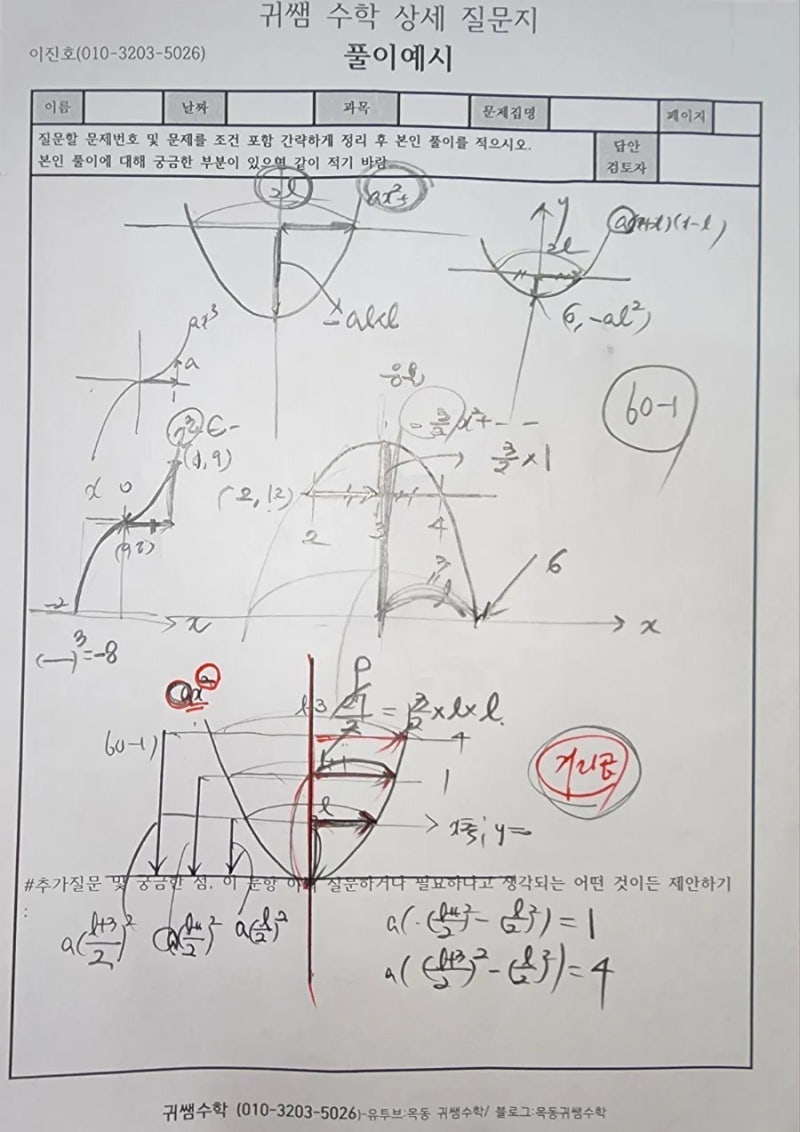 귀쌤 수학 상세 질문지
이진호(010-3203-5026)
풀이예시
이름 날짜 과목 문제집명 페이지
질문할 문제번호 및 문제를 조건 포함 간략하게 정리 후 본인 풀이를 적으시오.
본인 풀이에 대해 궁금한 부분이 있으면 같이 적기 바람
답안
검토자
2l
ax²+
y
2l
a(x+l)(x-l)
-al×l
-al²)
ax³
a
1
응용
60-1
-3/2 x²+ - -
3/2 × 1
(1,9)
x 0
2 3 4
3
l
6
-2
x
x
( )³=-8
ax²
l+3
27/2 = 3/2 × l × l.
60-1)
4
l+1
1
거리곱
l
y=
#추가질문 및 궁금한 점, 이 문항 질문하거나 필요하다고 생각되는 어떤 것이든 제안하기
:
a(l+3/2)² a(l+1/2)² a(l/2)²
a((l+1/2)² - (l/2)²) = 1
a((l+3/2)² - (l/2)²) = 4
귀쌤수학 (010-3203-5026)-유투브:목동 귀쌤수학/ 블로그:목동귀쌤수학